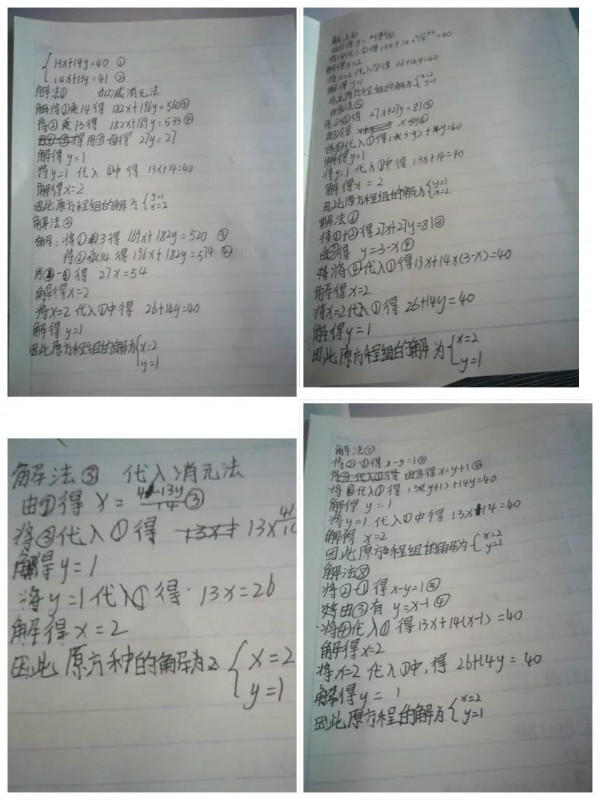 13x+14y=40 ①
14x+13y=41 ②
解法① 加减消元法
解将①乘14得 182x+196y=560③
将②乘13得 182x+169y=533④
用③-④得 27y=27
解得y=1
将y=1代入①中得 13x+14=40
解得x=2
因此原方程组的解为{y=1 x=2
解法②
解: 将①乘13得 169x+182y=520 ③
将②乘14得 196x+182y=574 ④
用④-③得 27x=54
解得x=2
将x=2代入①中得 26+14y=40
解得y=1
因此原方程组的解为{x=2 y=1
解得x=2
将x=2代入①得 26+14y=40
解得y=1
因此原方程组的解为{x=2 y=1
解法⑤
27x+27y=81③
解得y=1
将y=1代入①中得 13x+14=40
解得x=2
因此原方程组的解为{y=1 x=2
解法⑥
将①+②得27x+27y=81③
由③得 y=3-x④
将④代入①得13x+14x(3-x)=40
解得x=2
将x=2代入①得 26+14y=40
解得y=1
因此原方程组的解为{x=2 y=1
解法③ 代入消元法
由②得 x=41-13y/14③
将③代入①得 13x
解得y=1
将y=1代入①得 13x=26
解得x=2
因此原方程的解为{x=2 y=1
解法⑦
将②-①得 x-y=1③
由③得x=y+1④
将④代入①得 13(y+1)+14y=40
解得 y=1
将y=1代入①中得 13x+14=40
解得 x=2
因此原方程组的解为{x=2 y=1
解法⑧
将②-①得x-y=1③
由③有 y=x-1④
将④代入①得13x+14(x-1)=40
解得x=2
将x=2代入①中,得 26+14y=40
解得y=1
因此原方程的解为{x=2 y=1